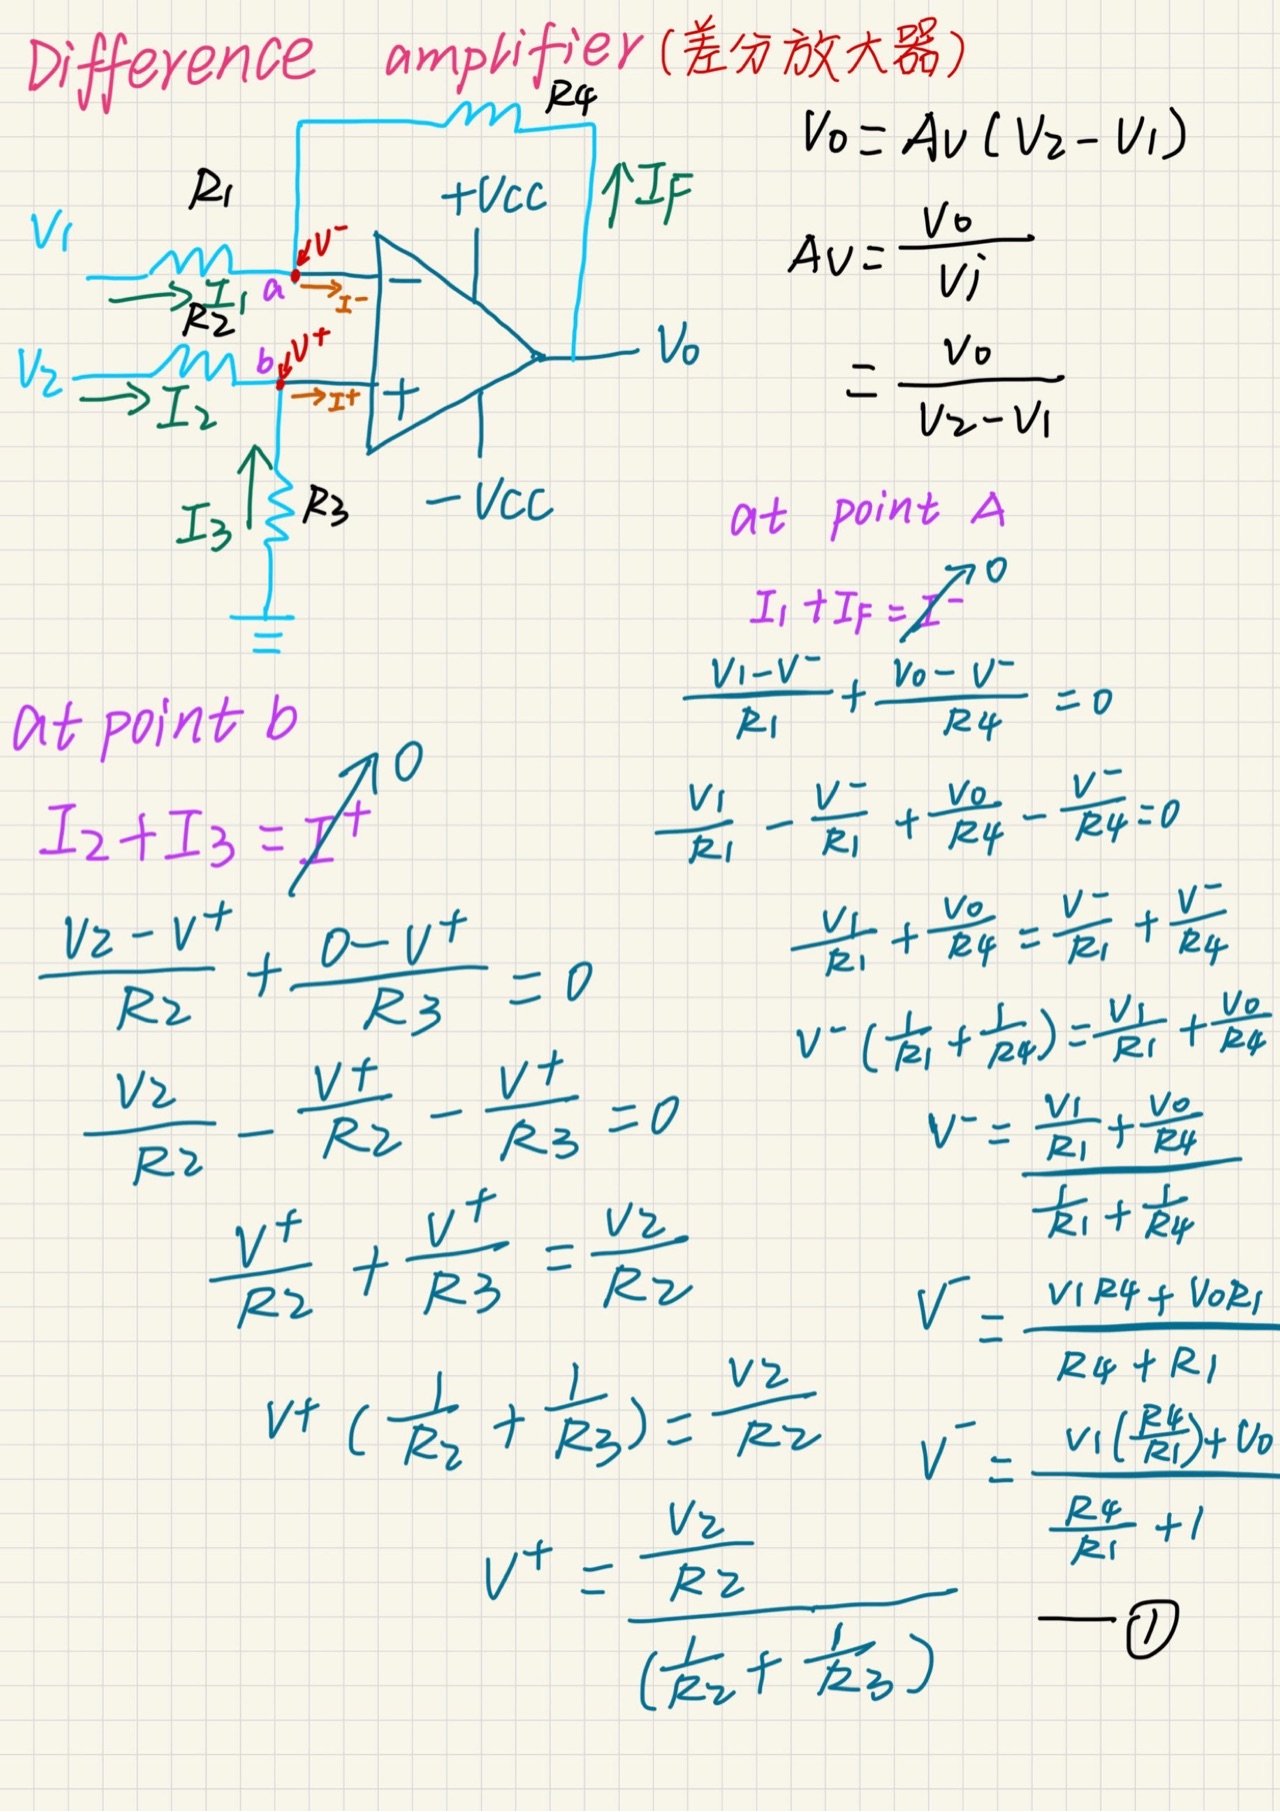 Difference amplifier (差分放大器)
R4
R1
+VCC
↑IF
V1
V-
a
I1
I-
R2
V2
b
V+
I2
I+
V0
I3
R3
-VCC
V0 = AV (V2 - V1)
AV = V0/Vj
= V0/(V2 - V1)
at point A
I1 + IF = I- → 0
(V1 - V-)/R1 + (V0 - V-)/R4 = 0
V1/R1 - V-/R1 + V0/R4 - V-/R4 = 0
V1/R1 + V0/R4 = V-/R1 + V-/R4
V- (1/R1 + 1/R4) = V1/R1 + V0/R4
V- = (V1/R1 + V0/R4)/(1/R1 + 1/R4)
V- = (V1R4 + V0R1)/(R4 + R1)
V- = (V1(R4/R1) + V0)/(R4/R1 + 1)
— ①
at point b
I2 + I3 = I+ → 0
(V2 - V+)/R2 + (0 - V+)/R3 = 0
V2/R2 - V+/R2 - V+/R3 = 0
V+/R2 + V+/R3 = V2/R2
V+ (1/R2 + 1/R3) = V2/R2
V+ = (V2/R2)/(1/R2 + 1/R3)